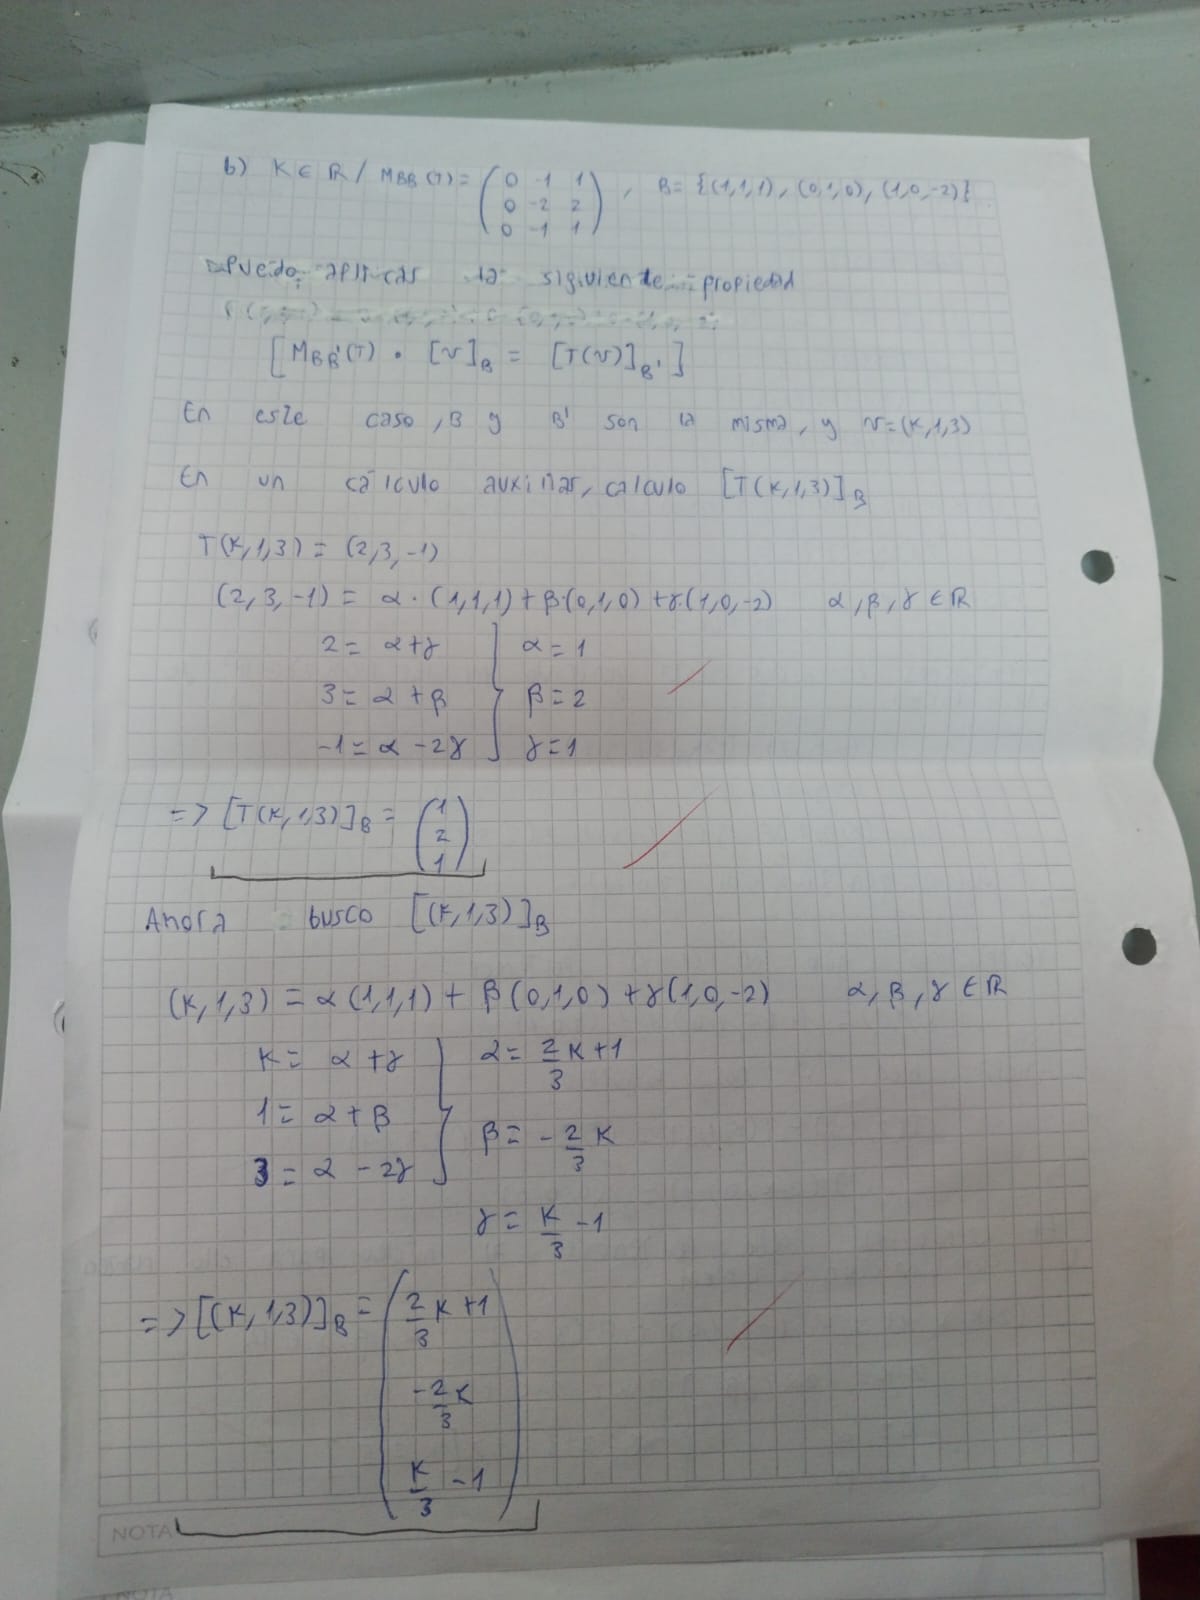 b) K ∈ ℝ / M_BB(T) = ( 0 -1 1 ) , B = {(1,1,1), (0,1,0), (1,0,-2)}
( 0 -2 2 )
( 0 -1 1 )
Puedo aplicar la siguiente propiedad
[M_BB'(T) · [v]_B = [T(v)]_B']
En este caso, B y B' son la misma, y v=(K,1,3)
En un cálculo auxiliar, calculo [T(K,1,3)]_B
T(K,1,3) = (2,3,-1)
(2,3,-1) = α·(1,1,1)+β·(0,1,0)+γ·(1,0,-2) α,β,γ ∈ ℝ
2 = α+γ α=1
3 = α+β β=2
-1 = α-2γ γ=1
=> [T(K,1,3)]_B = ( 1 )
( 2 )
( 1 )
Ahora busco [(K,1,3)]_B
(K,1,3) = α(1,1,1)+β(0,1,0)+γ(1,0,-2) α,β,γ ∈ ℝ
K = α+γ α = 2/3 K+1
1 = α+β β = -2/3 K
3 = α-2γ
γ = K/3 -1
=> [(K,1,3)]_B = ( 2/3 K+1 )
( -2/3 K )
( K/3 -1 )
NOTA
NOTA